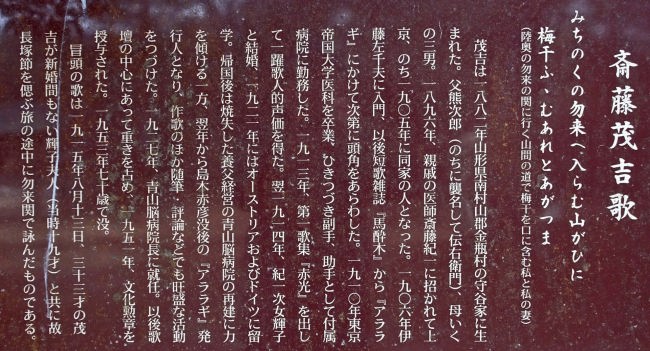 斎藤茂吉歌
みちのくの勿来へ入らむ山がひに
梅干ふゝむあれとあがつま
（陸奥の勿来の関に行く山間の道で梅干を口に含む私と私の妻）
茂吉は一八八二年山形県南村山郡金瓶村の守谷家に生
まれた。父熊次郎（のちに襲名して伝右衛門）、母いく
の三男。一八九六年、親戚の医師斎藤紀一に招かれて上
京、のち一九〇五年に同家の人となった。一九〇六年伊
藤左千夫に入門、以後短歌雑誌『馬酔木』から『アララ
ギ』にかけて次第に頭角をあらわした。一九一〇年東京
帝国大学医科を卒業、ひきつづき副手、助手として付属
病院に勤務した。一九一三年、第一歌集『赤光』を出し
て一躍歌人的声価を得た。翌一九一四年、紀一次女輝子
と結婚、一九二一年にはオーストリアおよびドイツに留
学。帰国後は焼失した養父経営の青山脳病院の再建に力
を傾ける一方、翌年から島木赤彦没後の『アララギ』発
行人となり、作歌のほか随筆・評論などでも旺盛な活動
をつづけた。一九二七年、青山脳病院長に就任。以後歌
壇の中心にあって重きを占め、一九五一年、文化勲章を
授与された。一九五三年七十歳で没。
冒頭の歌は一九一五年八月十三日、三十三才の茂
吉が新婚間もない輝子夫人（当時十九才）と共に故
長塚節を偲ぶ旅の途中に勿来関で詠んだものである。